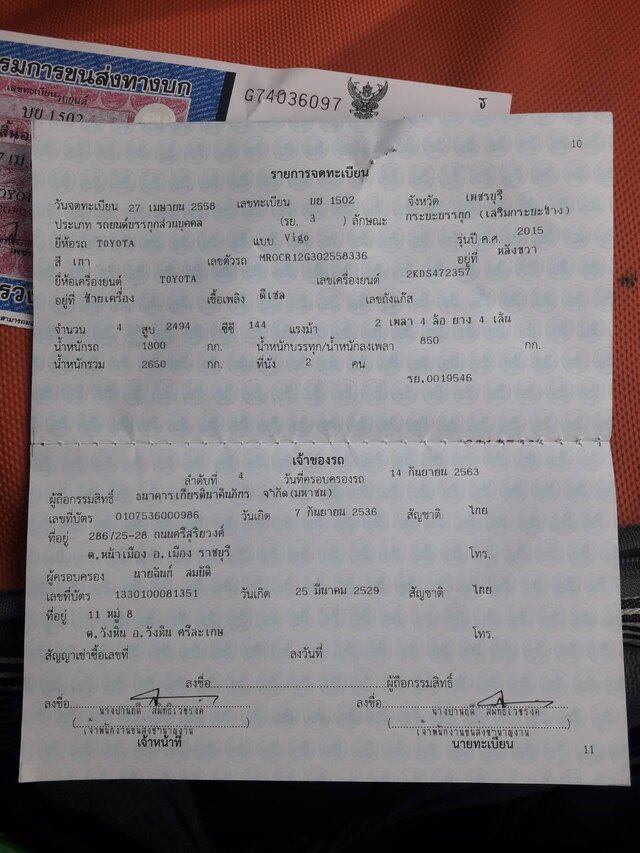 รมการขนส่งทางบก
เลขทะเบียนรถยนต์
บย 1502
G74036097
10
รายการจดทะเบียน
วันจดทะเบียน 27 เมษายน 2558 เลขทะเบียน บย 1502 จังหวัด เพชรบุรี
ประเภท รถยนต์บรรทุกส่วนบุคคล (รย. 3 ) ลักษณะ กระบะบรรทุก (เสริมกระบะข้าง)
ยี่ห้อรถ TOYOTA แบบ Vigo รุ่นปี ค.ศ. 2015
สี เทา เลขตัวรถ MROCR12G302558336 อยู่ที่ หลังขวา
ยี่ห้อเครื่องยนต์ TOYOTA เลขเครื่องยนต์ 2KDS472357
อยู่ที่ ซ้ายเครื่อง เชื้อเพลิง ดีเซล เลขถังแก๊ส
จำนวน 4 สูบ 2494 ซีซี 144 แรงม้า 2 เพลา 4 ล้อ ยาง 4 เส้น
น้ำหนักรถ 1800 กก. น้ำหนักบรรทุก/น้ำหนักลงเพลา 850 กก.
น้ำหนักรวม 2650 กก. ที่นั่ง 2 คน
รย.0019546
เจ้าของรถ
ลำดับที่ 4 วันที่ครอบครองรถ 14 กันยายน 2563
ผู้ถือกรรมสิทธิ์ ธนาคารเกียรตินาคินภัทร จำกัด(มหาชน)
เลขที่บัตร 0107536000986 วันเกิด 7 กันยายน 2536 สัญชาติ ไทย
ที่อยู่ 286/25-28 ถนนศรีสุริยวงศ์
ต.หน้าเมือง อ.เมือง ราชบุรี โทร.
ผู้ครอบครอง นายฉันท์ สมยิติ
เลขที่บัตร 1330100081351 วันเกิด 25 มีนาคม 2529 สัญชาติ ไทย
ที่อยู่ 11 หมู่ 8
ต.วังหิน อ.วังหิน ศรีสะเกษ โทร.
สัญญาเช่าซื้อเลขที่ ลงวันที่
ลงชื่อ ผู้ถือกรรมสิทธิ์
ลงชื่อ ลงชื่อ
เจ้าพนักงานขนส่งชำนาญงาน เจ้าพนักงานขนส่งชำนาญงาน
เจ้าหน้าที่ นายทะเบียน
11